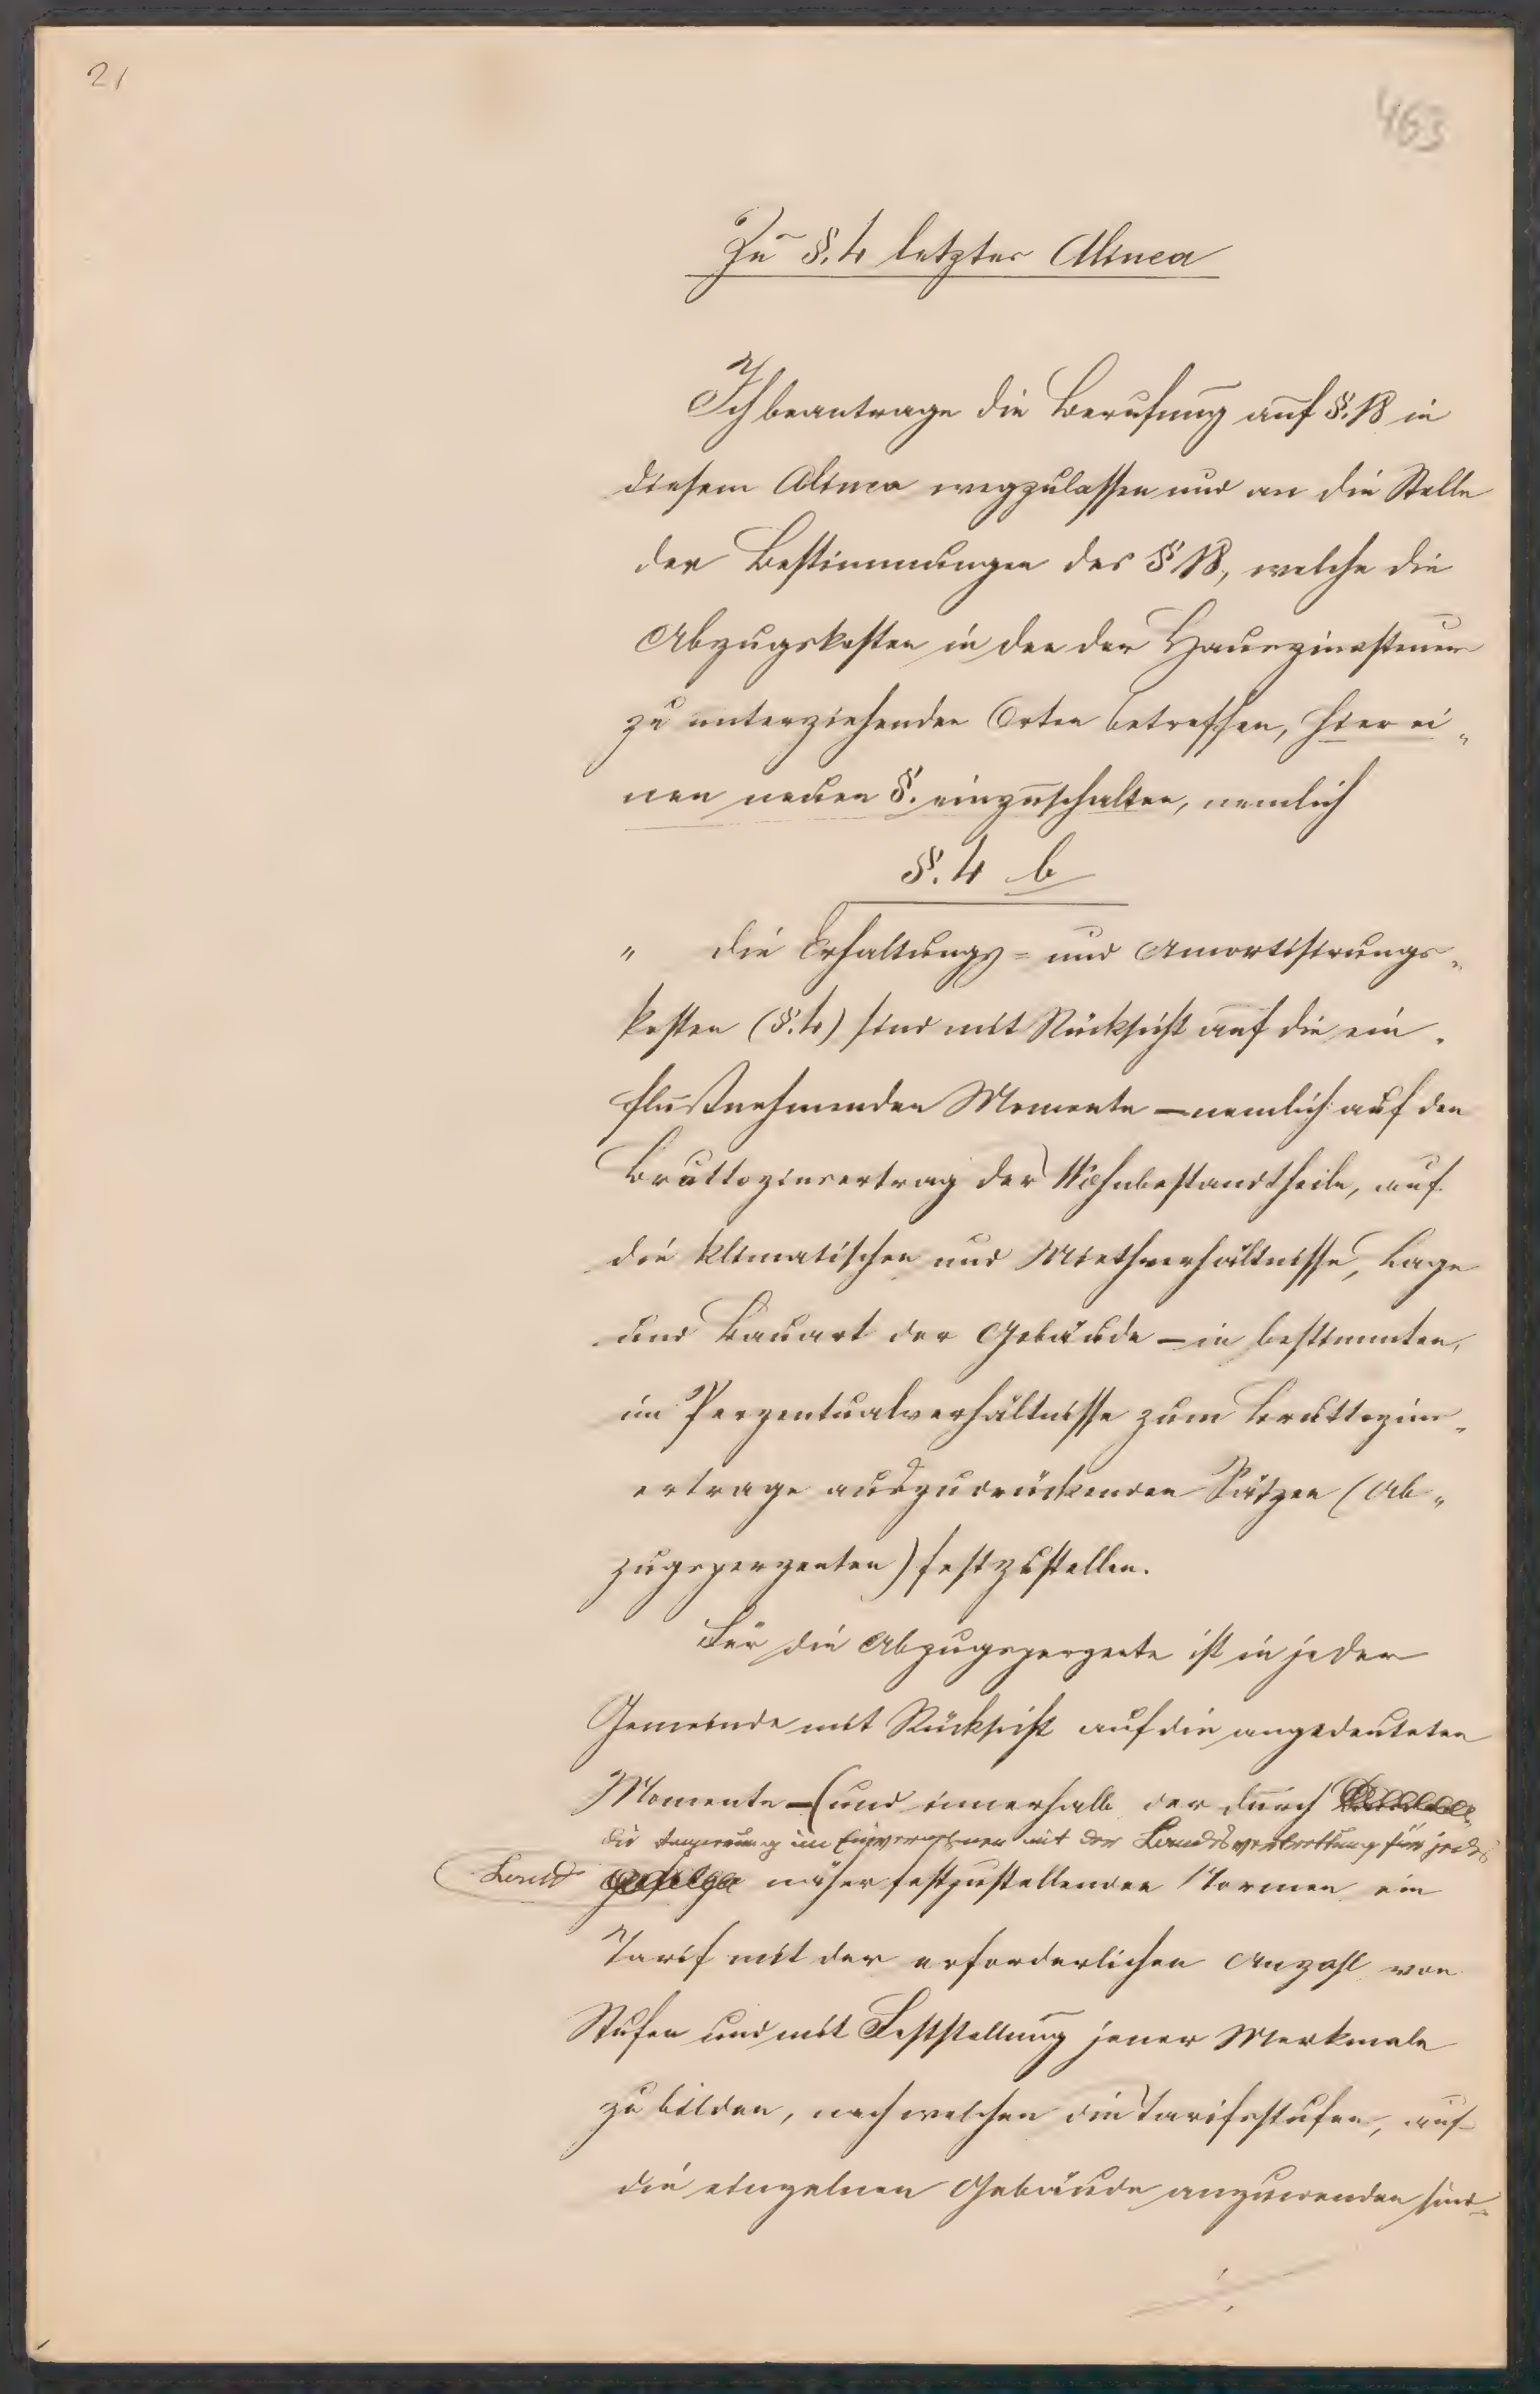 21
463
Zu §. 4 letzter Alinea
Ich beantrage die Berufung auf §. 18 in
diesem Alinea wegzulassen und an die Stelle
der Bestimmungen des § 18, welche die
Abzugskosten in den der Hauszinssteuer
zu unterziehenden Orten betreffen, hier ei„
nen neuen §. einzuschalten, nemlich
§. 4 b
„ die Erhaltungs= und Amortisirungs„
kosten (§. 4) sind mit Rücksicht auf die ein„
flußnehmenden Momente — nemlich auf den
Bruttozinsertrag der Wohnbestandtheile, auf
die klimatischen und Miethverhältnisse, Lage
und Bauart der Gebäude — in bestimmten,
im Perzentualverhältnisse zum Bruttozins„
ertrage auszudrückenden Sätzen (Ab„
zugsperzenten) festzustellen.
Für die Abzugsperzente ist in jeder
Gemeinde mit Rücksicht auf die angedeuteten
Momente — (und innerhalb der durch
die Regierung im Einvernehmen mit der Landesvertretung für jedes
Land näher festzustellenden Normen ein
Tarif mit der erforderlichen Anzahl von
Stufen und mit Feststellung jener Merkmale
zu bilden, nach welchen die Tarifsstufen, auf
die einzelnen Gebäude anzuwenden sind.